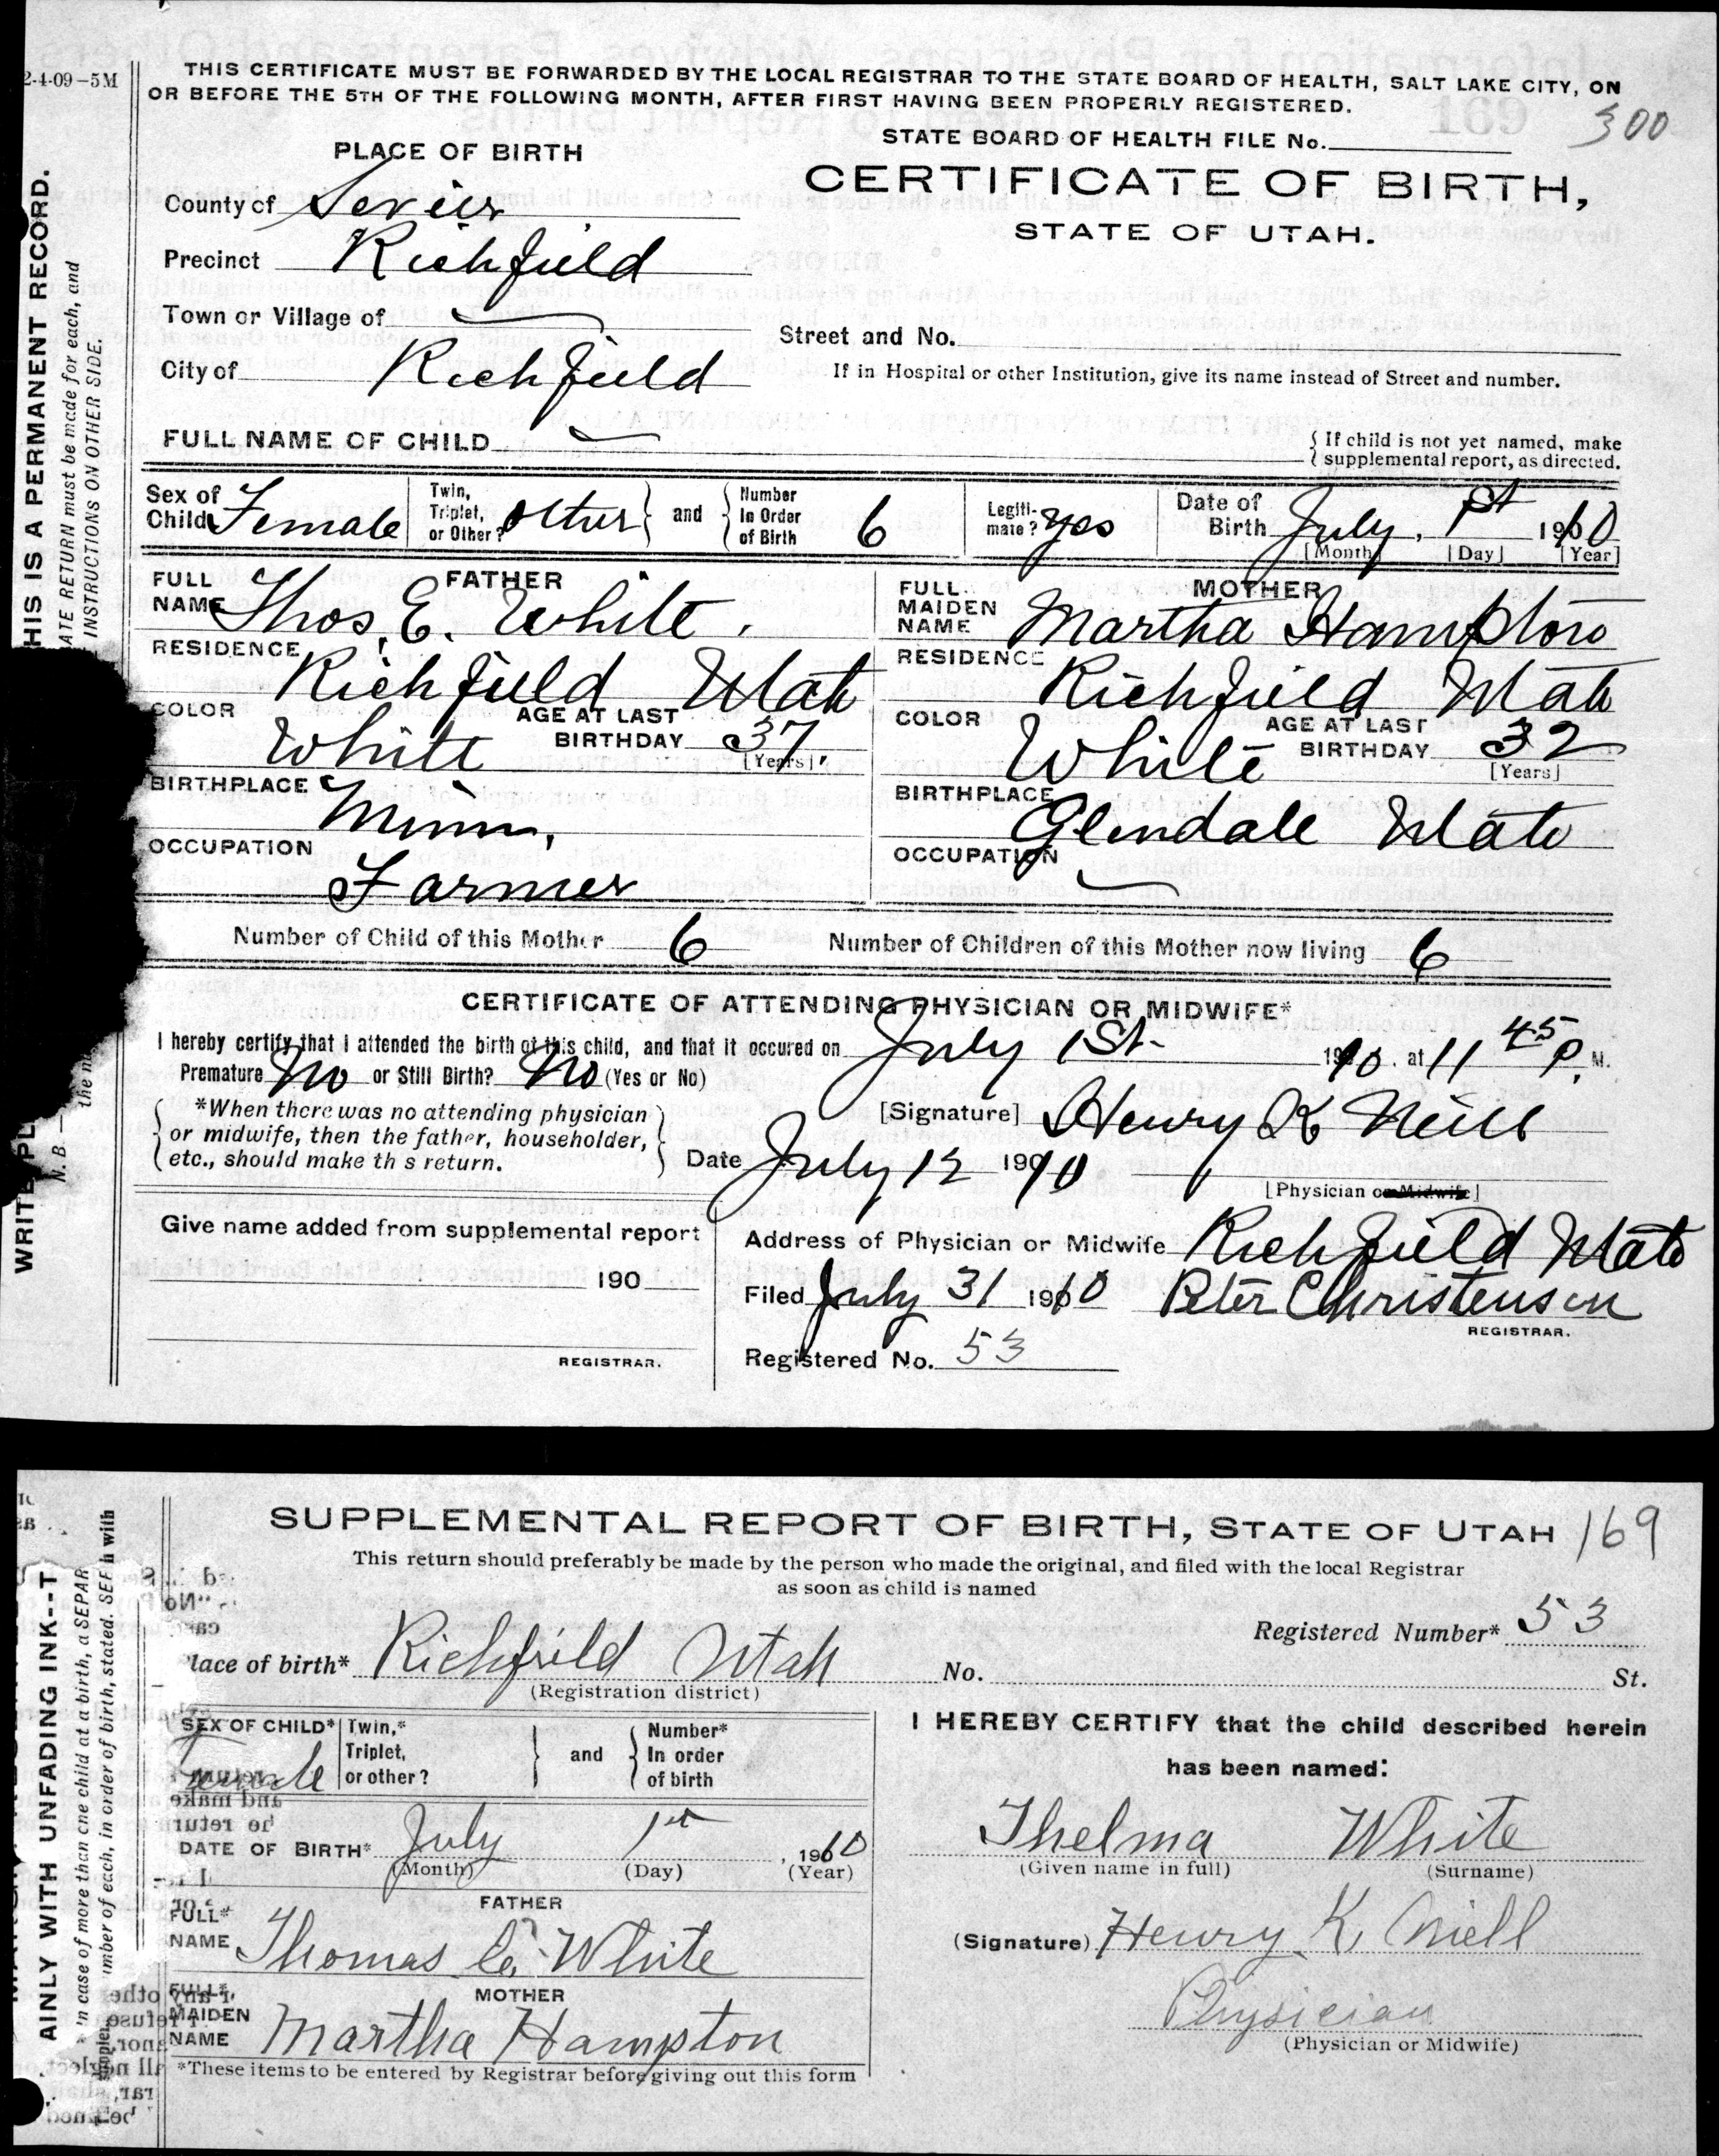 2-4-09-5M
THIS CERTIFICATE MUST BE FORWARDED BY THE LOCAL REGISTRAR TO THE STATE BOARD OF HEALTH, SALT LAKE CITY, ON
OR BEFORE THE 5TH OF THE FOLLOWING MONTH, AFTER FIRST HAVING BEEN PROPERLY REGISTERED.
169 300
STATE BOARD OF HEALTH FILE No.
PLACE OF BIRTH
CERTIFICATE OF BIRTH,
STATE OF UTAH.
County of Sevier
Precinct Richfield
Town or Village of
Street and No.
City of Richfield
If in Hospital or other Institution, give its name instead of Street and number.
FULL NAME OF CHILD
{ If child is not yet named, make
supplemental report, as directed.
Sex of Child Female
Twin, Triplet, or Other? other } and { Number In Order of Birth 6
Legitimate? yes
Date of Birth July, 1st 1910
[Month] [Day] [Year]
FATHER
FULL NAME Thos. E. White.
RESIDENCE Richfield Utah
COLOR White AGE AT LAST BIRTHDAY 37.
[Years]
BIRTHPLACE Minn,
OCCUPATION Farmer
MOTHER
FULL MAIDEN NAME Martha Hampton
RESIDENCE Richfield Utah
COLOR White AGE AT LAST BIRTHDAY 32
[Years]
BIRTHPLACE Glendale Utah
OCCUPATION
Number of Child of this Mother 6 Number of Children of this Mother now living 6
CERTIFICATE OF ATTENDING PHYSICIAN OR MIDWIFE*
I hereby certify that I attended the birth of this child, and that it occured on July 1st. 1910. at 11 45 P. M.
Premature No or Still Birth? No (Yes or No)
{ *When there was no attending physician
or midwife, then the father, householder,
etc., should make th s return. }
[Signature] Henry K Neill
Date July 12 1910
[Physician or Midwife]
Give name added from supplemental report
190
REGISTRAR.
Address of Physician or Midwife Richfield Utah
Filed July 31 1910 Peter Christensen
REGISTRAR.
Registered No. 53
HIS IS A PERMANENT RECORD.
ATE RETURN must be made for each, and
INSTRUCTIONS ON OTHER SIDE.
WRITE PL
N. B.
SUPPLEMENTAL REPORT OF BIRTH, STATE OF UTAH 169
This return should preferably be made by the person who made the original, and filed with the local Registrar
as soon as child is named
Registered Number* 53
lace of birth* Richfield Utah No. St.
(Registration district)
SEX OF CHILD* Female
Twin,* Triplet, or other? } and { Number* In order of birth
DATE OF BIRTH* July 1st, 1910
(Month) (Day) (Year)
FATHER
FULL* NAME Thomas E. White
MOTHER
FULL* MAIDEN NAME Martha Hampton
*These items to be entered by Registrar before giving out this form
I HEREBY CERTIFY that the child described herein
has been named:
Thelma White
(Given name in full) (Surname)
(Signature) Henry K. Niell
Physician
(Physician or Midwife)
AINLY WITH UNFADING INK--T
n case of more than one child at a birth, a SEPAR
mber of each, in order of birth, stated. SEE
h with